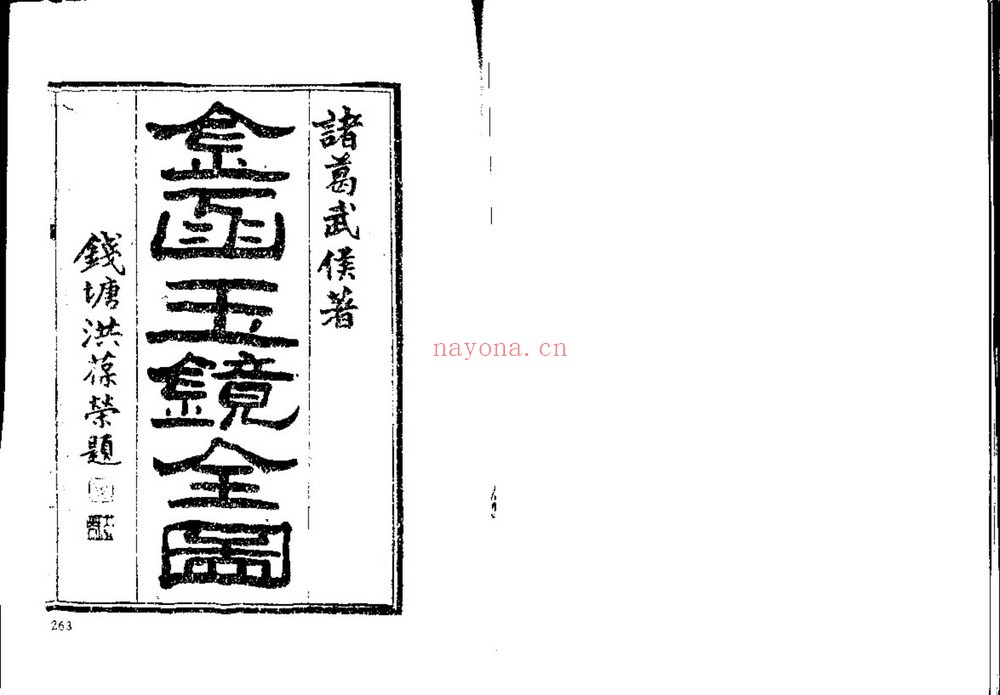 諸葛武侯著
金函玉鏡全圖
錢塘洪葆榮題
263
nayona.cn